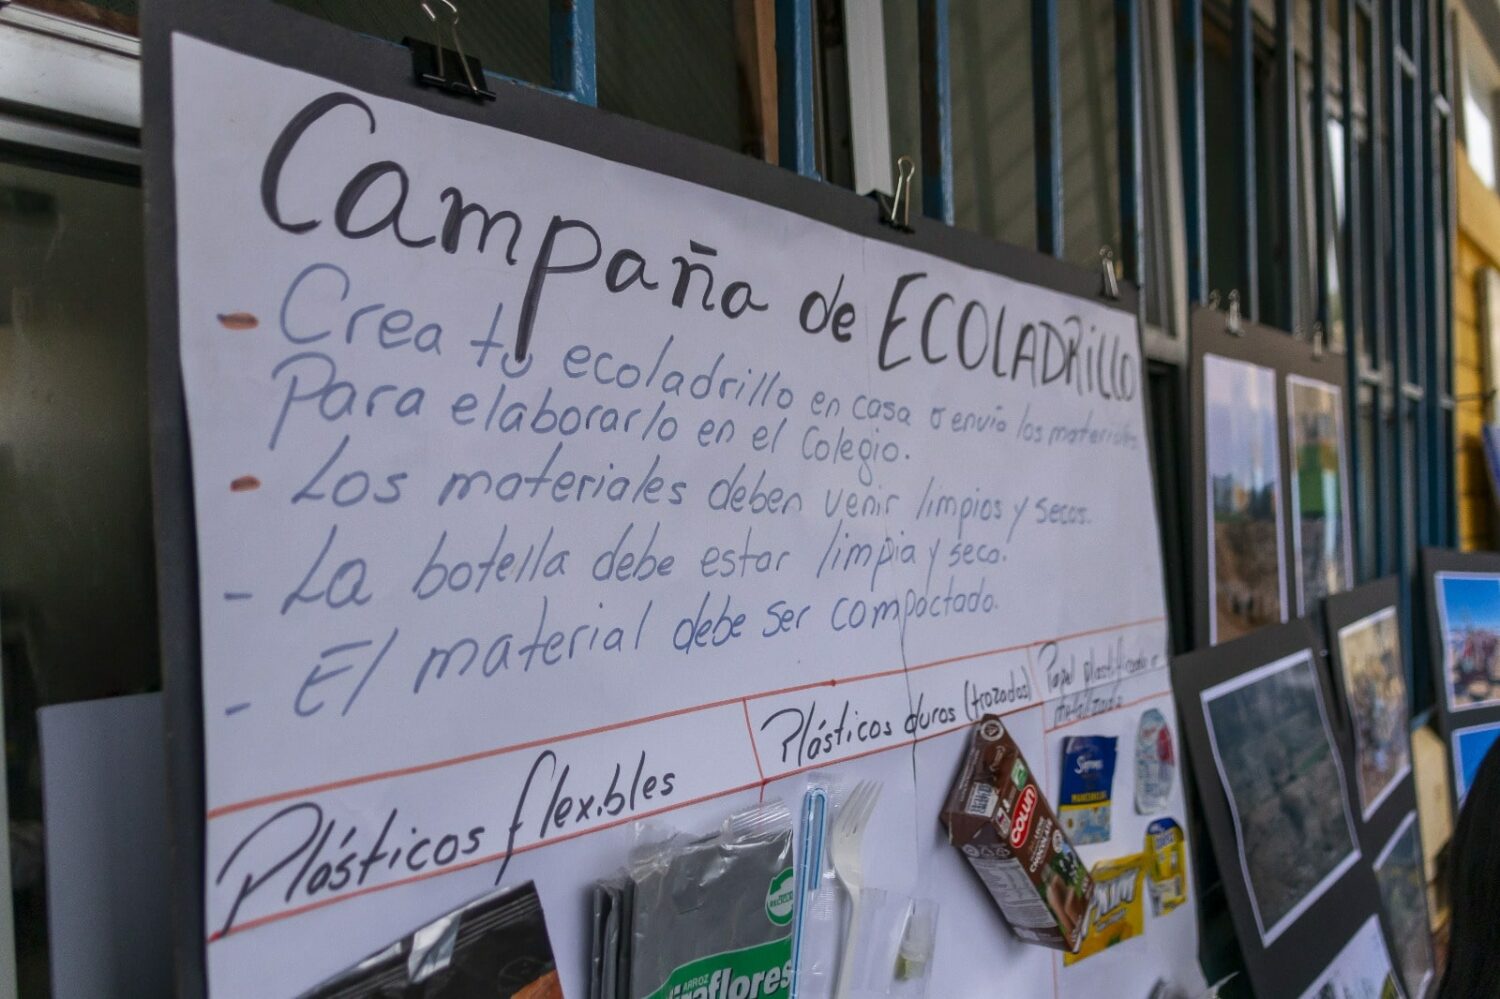 Campaña de ECOLADRILLO
- Crea tu ecoladrillo en casa o envía los materiales
Para elaborarlo en el Colegio.
- Los materiales deben venir limpios y secos.
- La botella debe estar limpia y seco.
- El material debe ser compactado.
Plásticos flexibles
Plásticos duros (trozados)
Papel plastificado o
metalizado
COLUN
ARROZ